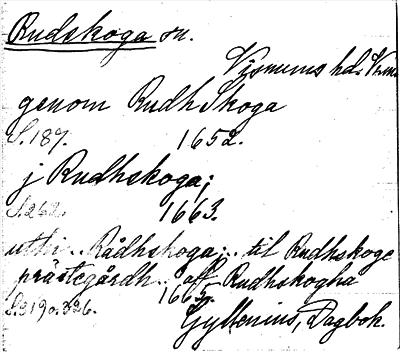 Rudskoga sn.
Visnums hd. Vrml.
genom RudhSkoga
S.187. 1652.
j Rudhskoga;
S.262. 1663.
uthi .. Rådhskoga; .. til Rudhskoge
prästegårdh .. aff Rudhskogha
S.319 o. 326. 1665.
Gyllenius, Dagbok.